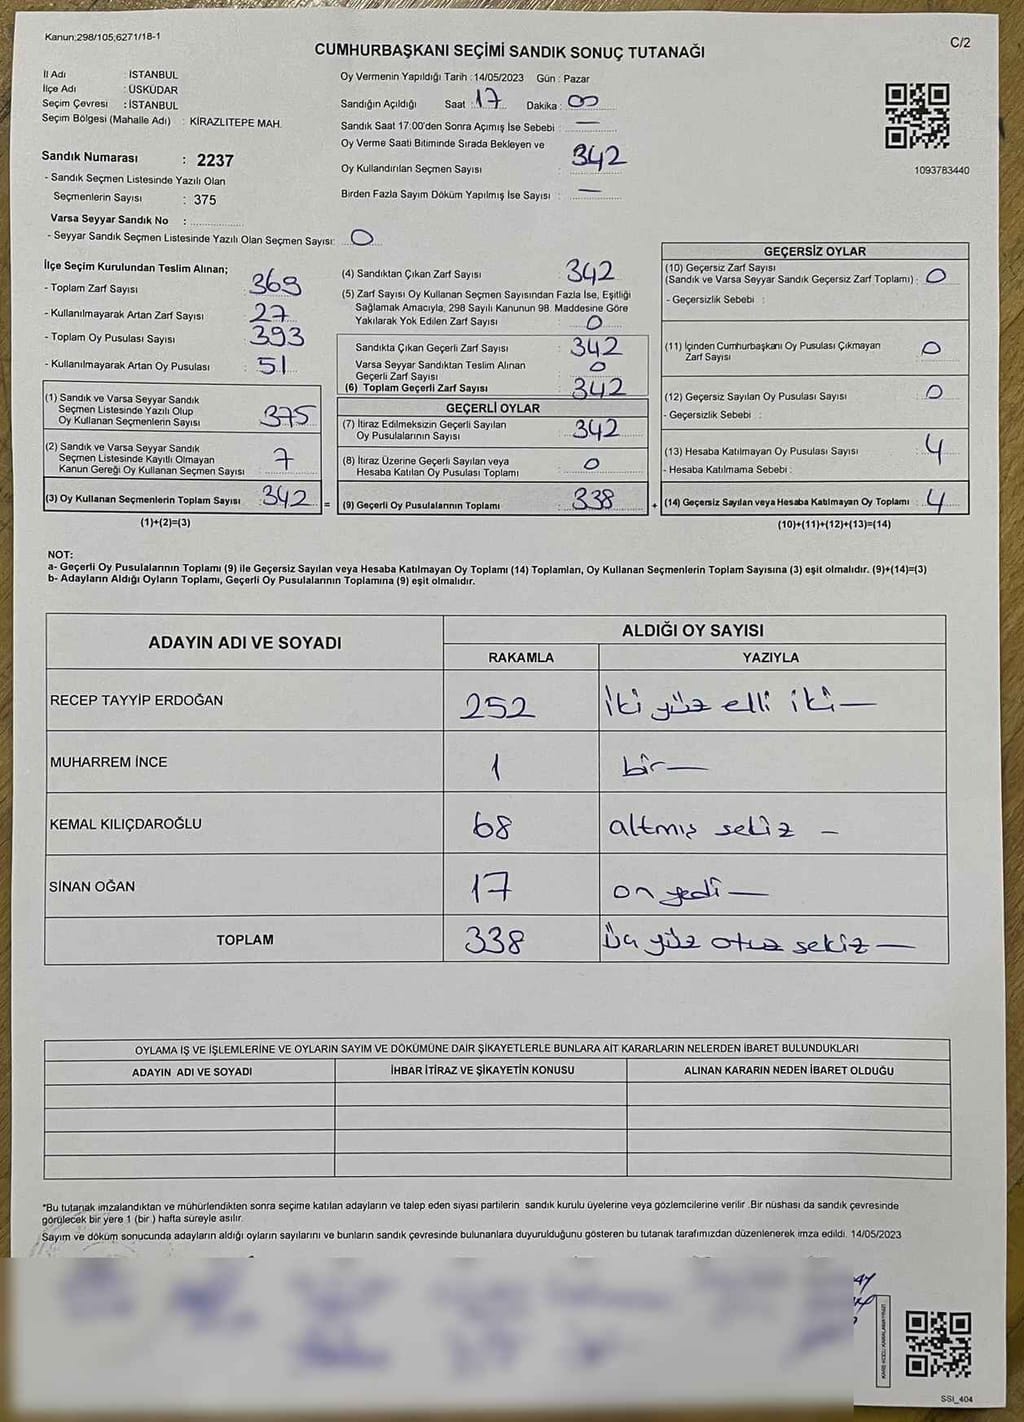 Kanun:298/105,6271/18-1
C/2
CUMHURBAŞKANI SEÇİMİ SANDIK SONUÇ TUTANAĞI
İl Adı : İSTANBUL
İlçe Adı : ÜSKÜDAR
Seçim Çevresi : İSTANBUL
Seçim Bölgesi (Mahalle Adı) : KİRAZLITEPE MAH.
Sandık Numarası : 2237
- Sandık Seçmen Listesinde Yazılı Olan
Seçmenlerin Sayısı : 375
Varsa Seyyar Sandık No :
- Seyyar Sandık Seçmen Listesinde Yazılı Olan Seçmen Sayısı: 0
Oy Vermenin Yapıldığı Tarih : 14/05/2023 Gün : Pazar
Sandığın Açıldığı Saat : 17 Dakika : 00
Sandık Saat 17:00'den Sonra Açımış İse Sebebi : —
Oy Verme Saati Bitiminde Sırada Bekleyen ve
Oy Kullandırılan Seçmen Sayısı : 342
Birden Fazla Sayım Döküm Yapılmış İse Sayısı : —
1093783440
İlçe Seçim Kurulundan Teslim Alınan;
- Toplam Zarf Sayısı : 369
- Kullanılmayarak Artan Zarf Sayısı : 27
- Toplam Oy Pusulası Sayısı : 393
- Kullanılmayarak Artan Oy Pusulası : 51
(1) Sandık ve Varsa Seyyar Sandık
Seçmen Listesinde Yazılı Olup
Oy Kullanan Seçmenlerin Sayısı : 375
(2) Sandık ve Varsa Seyyar Sandık
Seçmen Listesinde Kayıtlı Olmayan
Kanun Gereği Oy Kullanan Seçmen Sayısı : 7
(3) Oy Kullanan Seçmenlerin Toplam Sayısı : 342 =
(1)+(2)=(3)
(4) Sandıktan Çıkan Zarf Sayısı : 342
(5) Zarf Sayısı Oy Kullanan Seçmen Sayısından Fazla İse, Eşitliği
Sağlamak Amacıyla, 298 Sayılı Kanunun 98. Maddesine Göre
Yakılarak Yok Edilen Zarf Sayısı : 0
Sandıkta Çıkan Geçerli Zarf Sayısı : 342
Varsa Seyyar Sandıktan Teslim Alınan
Geçerli Zarf Sayısı : 0
(6) Toplam Geçerli Zarf Sayısı : 342
GEÇERLİ OYLAR
(7) İtiraz Edilmeksizin Geçerli Sayılan
Oy Pusulalarının Sayısı : 342
(8) İtiraz Üzerine Geçerli Sayılan veya
Hesaba Katılan Oy Pusulası Toplamı : 0
(9) Geçerli Oy Pusulalarının Toplamı : 338 +
GEÇERSİZ OYLAR
(10) Geçersiz Zarf Sayısı
(Sandık ve Varsa Seyyar Sandık Geçersiz Zarf Toplamı) : 0
- Geçersizlik Sebebi :
(11) İçinden Cumhurbaşkanı Oy Pusulası Çıkmayan
Zarf Sayısı : 0
(12) Geçersiz Sayılan Oy Pusulası Sayısı : 0
- Geçersizlik Sebebi :
(13) Hesaba Katılmayan Oy Pusulası Sayısı : 4
- Hesaba Katılmama Sebebi :
(14) Geçersiz Sayılan veya Hesaba Katılmayan Oy Toplamı : 4
(10)+(11)+(12)+(13)=(14)
NOT:
a- Geçerli Oy Pusulalarının Toplamı (9) ile Geçersiz Sayılan veya Hesaba Katılmayan Oy Toplamı (14) Toplamları, Oy Kullanan Seçmenlerin Toplam Sayısına (3) eşit olmalıdır. (9)+(14)=(3)
b- Adayların Aldığı Oyların Toplamı, Geçerli Oy Pusulalarının Toplamına (9) eşit olmalıdır.
ADAYIN ADI VE SOYADI
ALDIĞI OY SAYISI
RAKAMLA YAZIYLA
RECEP TAYYİP ERDOĞAN 252 iki yüz elli iki —
MUHARREM İNCE 1 bir —
KEMAL KILIÇDAROĞLU 68 altmış sekiz —
SİNAN OĞAN 17 on yedi —
TOPLAM 338 Üç yüz otuz sekiz —
OYLAMA İŞ VE İŞLEMLERİNE VE OYLARIN SAYIM VE DÖKÜMÜNE DAİR ŞİKAYETLERLE BUNLARA AİT KARARLARIN NELERDEN İBARET BULUNDUKLARI
ADAYIN ADI VE SOYADI İHBAR İTİRAZ VE ŞİKAYETİN KONUSU ALINAN KARARIN NEDEN İBARET OLDUĞU
*Bu tutanak imzalandıktan ve mühürlendikten sonra seçime katılan adayların ve talep eden siyasi partilerin sandık kurulu üyelerine veya gözlemcilerine verilir. Bir nüshası da sandık çevresinde
görülecek bir yere 1 (bir ) hafta süreyle asılır.
Sayım ve döküm sonucunda adayların aldığı oyların sayılarını ve bunların sandık çevresinde bulunanlara duyurulduğunu gösteren bu tutanak tarafımızdan düzenlenerek imza edildi. 14/05/2023
SSI_404